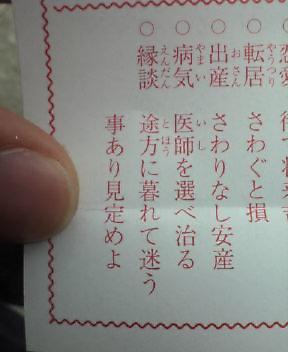 ○転居 さわぐと損
○出産 さわりなし安産
○病気 医師を選べ治る
○縁談 途方に暮れて迷う
事あり見定めよ